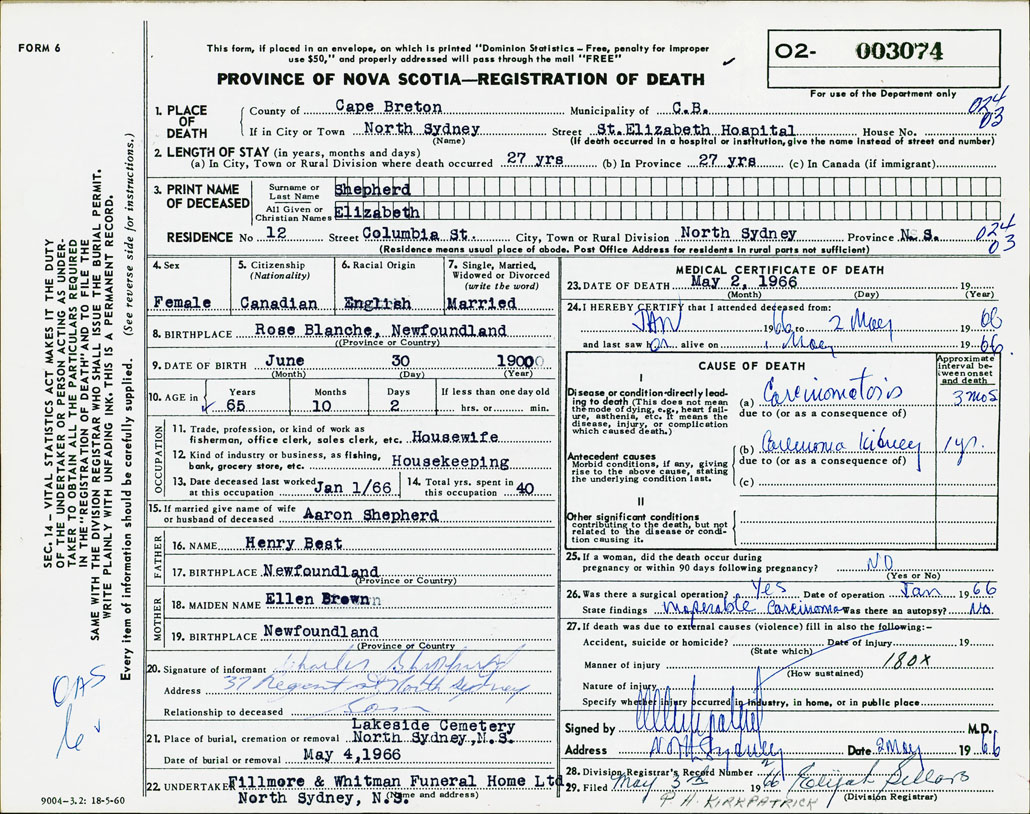 FORM 6
This form, if placed in an envelope, on which is printed "Dominion Statistics – Free, penalty for improper
use $50," and properly addressed will pass through the mail "FREE"
O2- 003074
PROVINCE OF NOVA SCOTIA—REGISTRATION OF DEATH
For use of the Department only
1. PLACE OF DEATH
County of Cape Breton Municipality of C.B. 024
If in City or Town North Sydney Street St.Elizabeth Hospital House No. 03
(Name) (If death occurred in a hospital or institution, give the name instead of street and number)
2. LENGTH OF STAY (in years, months and days)
(a) In City, Town or Rural Division where death occurred 27 yrs (b) In Province 27 yrs (c) In Canada (if immigrant)
3. PRINT NAME OF DECEASED
Surname or Last Name Shepherd
All Given or Christian Names Elizabeth
RESIDENCE No 12 Street Columbia St. City, Town or Rural Division North Sydney Province N.S. 024
03
(Residence means usual place of abode. Post Office Address for residents in rural parts not sufficient)
4. Sex Female
5. Citizenship (Nationality) Canadian
6. Racial Origin English
7. Single, Married, Widowed or Divorced (write the word) Married
8. BIRTHPLACE Rose Blanche, Newfoundland
(Province or Country)
9. DATE OF BIRTH June 30 1900
(Month) (Day) (Year)
10. AGE in Years 65 Months 10 Days 2 If less than one day old hrs. or min.
OCCUPATION
11. Trade, profession, or kind of work as
fisherman, office clerk, sales clerk, etc. Housewife
12. Kind of industry or business, as fishing,
bank, grocery store, etc. Housekeeping
13. Date deceased last worked at this occupation Jan 1/66
14. Total yrs. spent in this occupation 40
15. If married give name of wife
or husband of deceased Aaron Shepherd
FATHER
16. NAME Henry Best
17. BIRTHPLACE Newfoundland
(Province or Country)
MOTHER
18. MAIDEN NAME Ellen Brown
19. BIRTHPLACE Newfoundland
(Province or Country)
20. Signature of informant Charles Shepherd
Address 37 Regent st North Sydney
Relationship to deceased Son
21. Place of burial, cremation or removal Lakeside Cemetery
North Sydney,N.S.
Date of burial or removal May 4,1966
22. UNDERTAKER Fillmore & Whitman Funeral Home Ltd
North Sydney, N.S.
(Name and address)
9004-3.2: 18-5-60
MEDICAL CERTIFICATE OF DEATH
23. DATE OF DEATH May 2, 1966 19
(Month) (Day) (Year)
24. I HEREBY CERTIFY that I attended deceased from:
JAN 1966 to 2 May 19 66
and last saw h er alive on 1 May 19 66.
CAUSE OF DEATH
Approximate interval between onset and death
I
Disease or condition directly leading to death (This does not mean the mode of dying, e.g., heart failure, asthenia, etc. It means the disease, injury, or complication which caused death.)
(a) Carcinomatosis 3 mos
due to (or as a consequence of)
Antecedent causes
Morbid conditions, if any, giving rise to the above cause, stating the underlying condition last.
(b) Carcinoma kidney 1 yr.
due to (or as a consequence of)
(c)
II
Other significant conditions
contributing to the death, but not related to the disease or condition causing it.
25. If a woman, did the death occur during
pregnancy or within 90 days following pregnancy? NO
(Yes or No)
26. Was there a surgical operation? Yes Date of operation Jan 1966
State findings Inoperable Carcinoma Was there an autopsy? No
27. If death was due to external causes (violence) fill in also the following:–
Accident, suicide or homicide? Date of injury 19
(State which)
Manner of injury 180X
(How sustained)
Nature of injury
Specify whether injury occurred in industry, in home, or in public place
Signed by M.D.
Address North Sydney Date 2 May 19 66
28. Division Registrar's Record Number
29. Filed May 3rd 19 66 Elijah Sellars
(Division Registrar)
P H. KIRKPATRICK
SEC. 14 – VITAL STATISTICS ACT MAKES IT THE DUTY
OF THE UNDERTAKER OR PERSON ACTING AS UNDER-
TAKER TO OBTAIN ALL THE PARTICULARS REQUIRED
IN THE "REGISTRATION OF DEATH" AND TO FILE THE
SAME WITH THE DIVISION REGISTRAR WHO SHALL ISSUE THE BURIAL PERMIT.
WRITE PLAINLY WITH UNFADING INK. THIS IS A PERMANENT RECORD.
Every item of information should be carefully supplied. (See reverse side for instructions.)